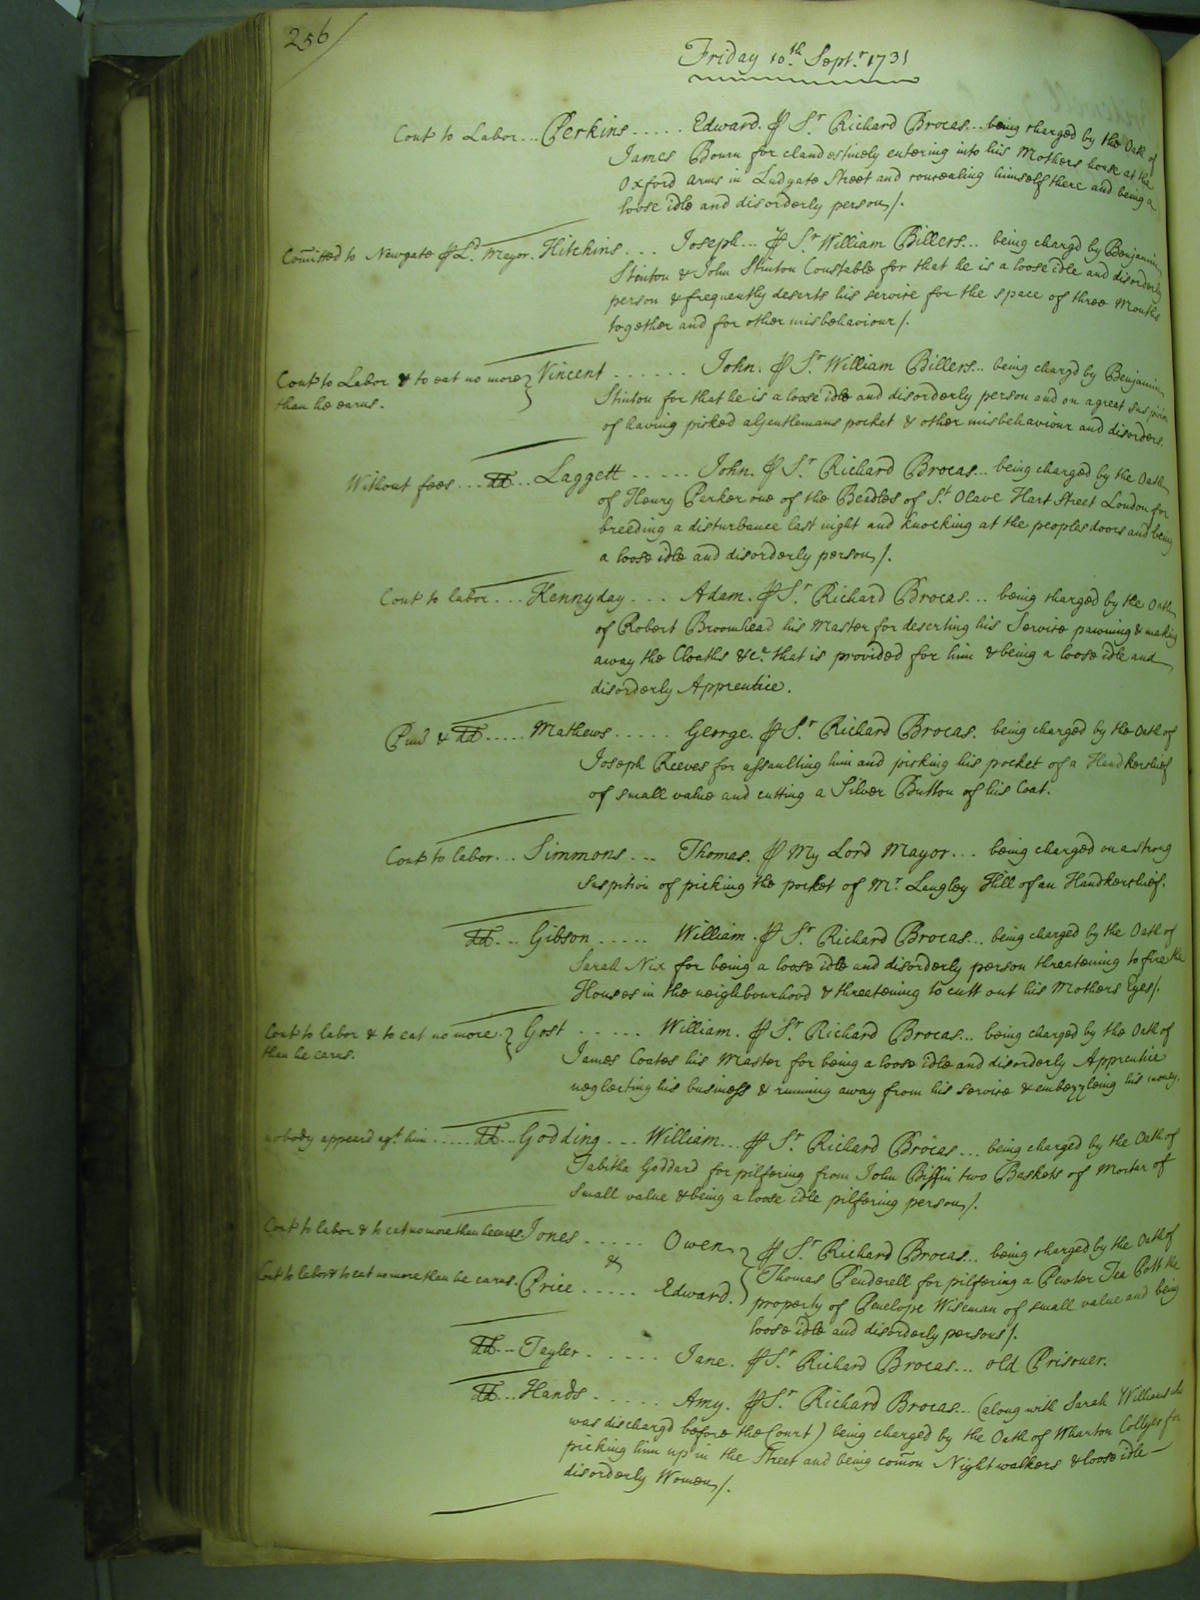 256/
Friday 10th Septr. 1731
Cont to Labor ... Perkins ..... Edward. ⅌ Sr. Richard Brocas... being charged by the Oath of
James Bourn for clandestinely entering into his Mothers house at the
Oxford Arms in Ludgate Street and concealing himself there and being a
loose idle and disorderly person/.
Comitted to Newgate ⅌ Ld. Mayor. Hitchins ... Joseph... ⅌ Sr. William Billers... being chargd by Benjamin
Stinton & John Stinton Constable for that he is a loose idle and disorderly
person & frequently deserts his service for the space of three Months
together and for other misbehaviour/.
Cont to Labor & to eat no more } Vincent ...... John. ⅌ Sr. William Billers... being chargd by Benjamin
than he earns.
Stinton for that he is a loose idle and disorderly person and on a great suspicion
of having picked a Gentlemans pocket & other misbehaviour and disorders.
Without fees ... dd ... Laggett ...... John. ⅌ Sr. Richard Brocas... being charged by the Oath
of Henry Parker one of the Beadles of St. Olave Hart Street London for
breeding a disturbance last night and knocking at the peoples doors and being
a loose idle and disorderly person/.
Cont to labor ... Kennyday ... Adam. ⅌ Sr. Richard Brocas... being charged by the Oath
of Robert Broomhead his Master for deserting his Service pawning & making
away the Cloaths &c. that is provided for him & being a loose idle and
disorderly Apprentice.
Pun & dd ..... Mathews ..... George. ⅌ Sr. Richard Brocas. being charged by the Oath of
Joseph Reeves for assaulting him and picking his pocket of a Handkerchief
of small value and cutting a Silver Button of his Coat.
Cont to labor... Simmons ... Thomas. ⅌ My Lord Mayor... being charged on a strong
suspition of picking the pocket of Mr. Langley Hill of an Handkerchief.
dd ... Gibson ..... William. ⅌ Sr. Richard Brocas... being charged by the Oath of
Sarah Nix for being a loose idle and disorderly person threatening to fire the
Houses in the neighbourhood & threatening to cutt out his Mothers Eyes/.
Cont to labor & to eat no more } Gost ..... William. ⅌ Sr. Richard Brocas... being charged by the Oath of
than he earns.
James Coates his Master for being a loose idle and disorderly Apprentice
neglecting his business & running away from his service & embezzleing his money.
nobody appeard agt. him ..... dd ... Godding ... William... ⅌ Sr. Richard Brocas ... being charged by the Oath of
Tabitha Goddard for pilfering from John Biffin two Baskets of Mortar of
small value & being a loose idle pilfering person/.
Cont to labor & to eat no more than he earns Jones ..... Owen } ⅌ Sr. Richard Brocas... being charged by the Oath of
&
Cont to labor & to eat no more than he earns. Price ..... Edward. } Thomas Penderell for pilfering a Pewter Tea Pott the
property of Penelope Wiseman of small value and being
loose idle and disorderly persons/.
dd... Tayler ...... Jane. ⅌ Sr. Richard Brocas... old Prisoner.
dd... Hands ...... Amy. ⅌ Sr. Richard Brocas... (along with Sarah Williams who
was dischargd before the Court) being charged by the Oath of Wharton Collyer for
picking him up in the Street and being comon Nightwalkers & loose idle
disorderly Women/.